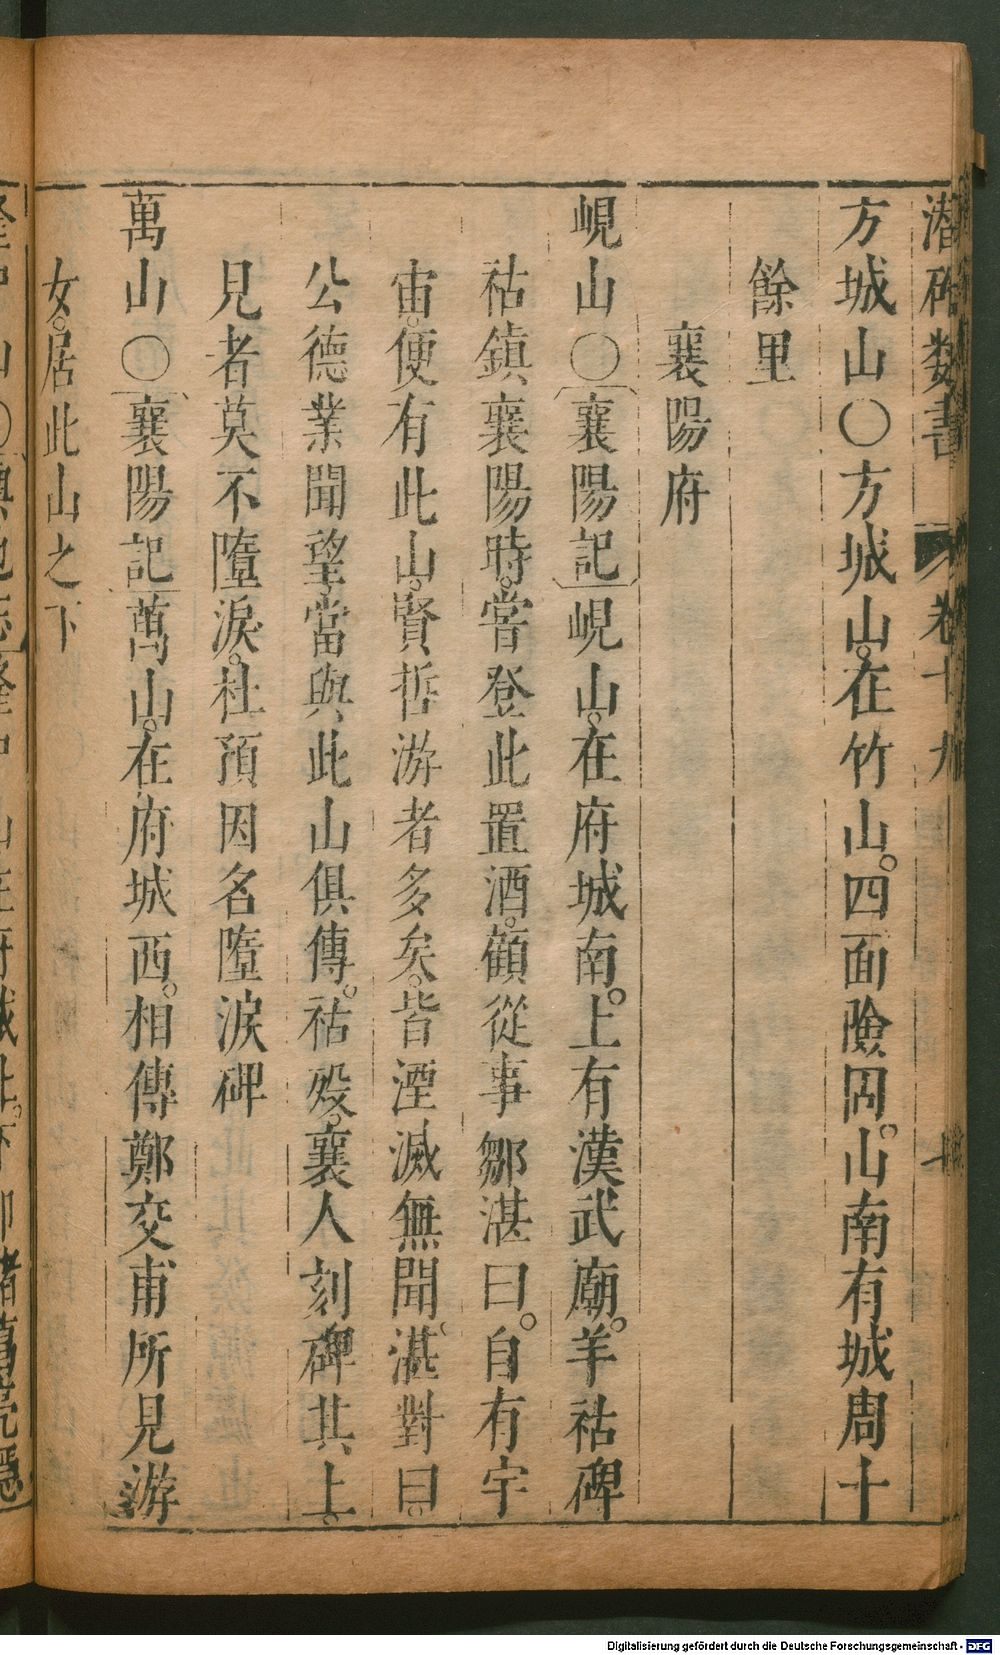 潛確類書 卷十九 十
方城山〇方城山。在竹山。四面險固。山南有城周十
餘里
襄陽府
峴山〇襄陽記峴山。在府城南。上有漢武廟。羊祜碑
祜鎮襄陽時。嘗登此置酒。顧從事鄒湛曰。自有宇
宙。便有此山。賢哲游者多矣。皆湮滅無聞。湛對曰。
公德業聞望當與此山俱傳。祜歿。襄人刻碑其上。
見者莫不墮淚。杜預因名墮淚碑
萬山〇襄陽記萬山。在府城西。相傳鄭交甫所見游
女。居此山之下
隆中山〇輿地志隆中山在府城北。下即諸葛亮隱
Digitalisierung gefördert durch die Deutsche Forschungsgemeinschaft - DFG